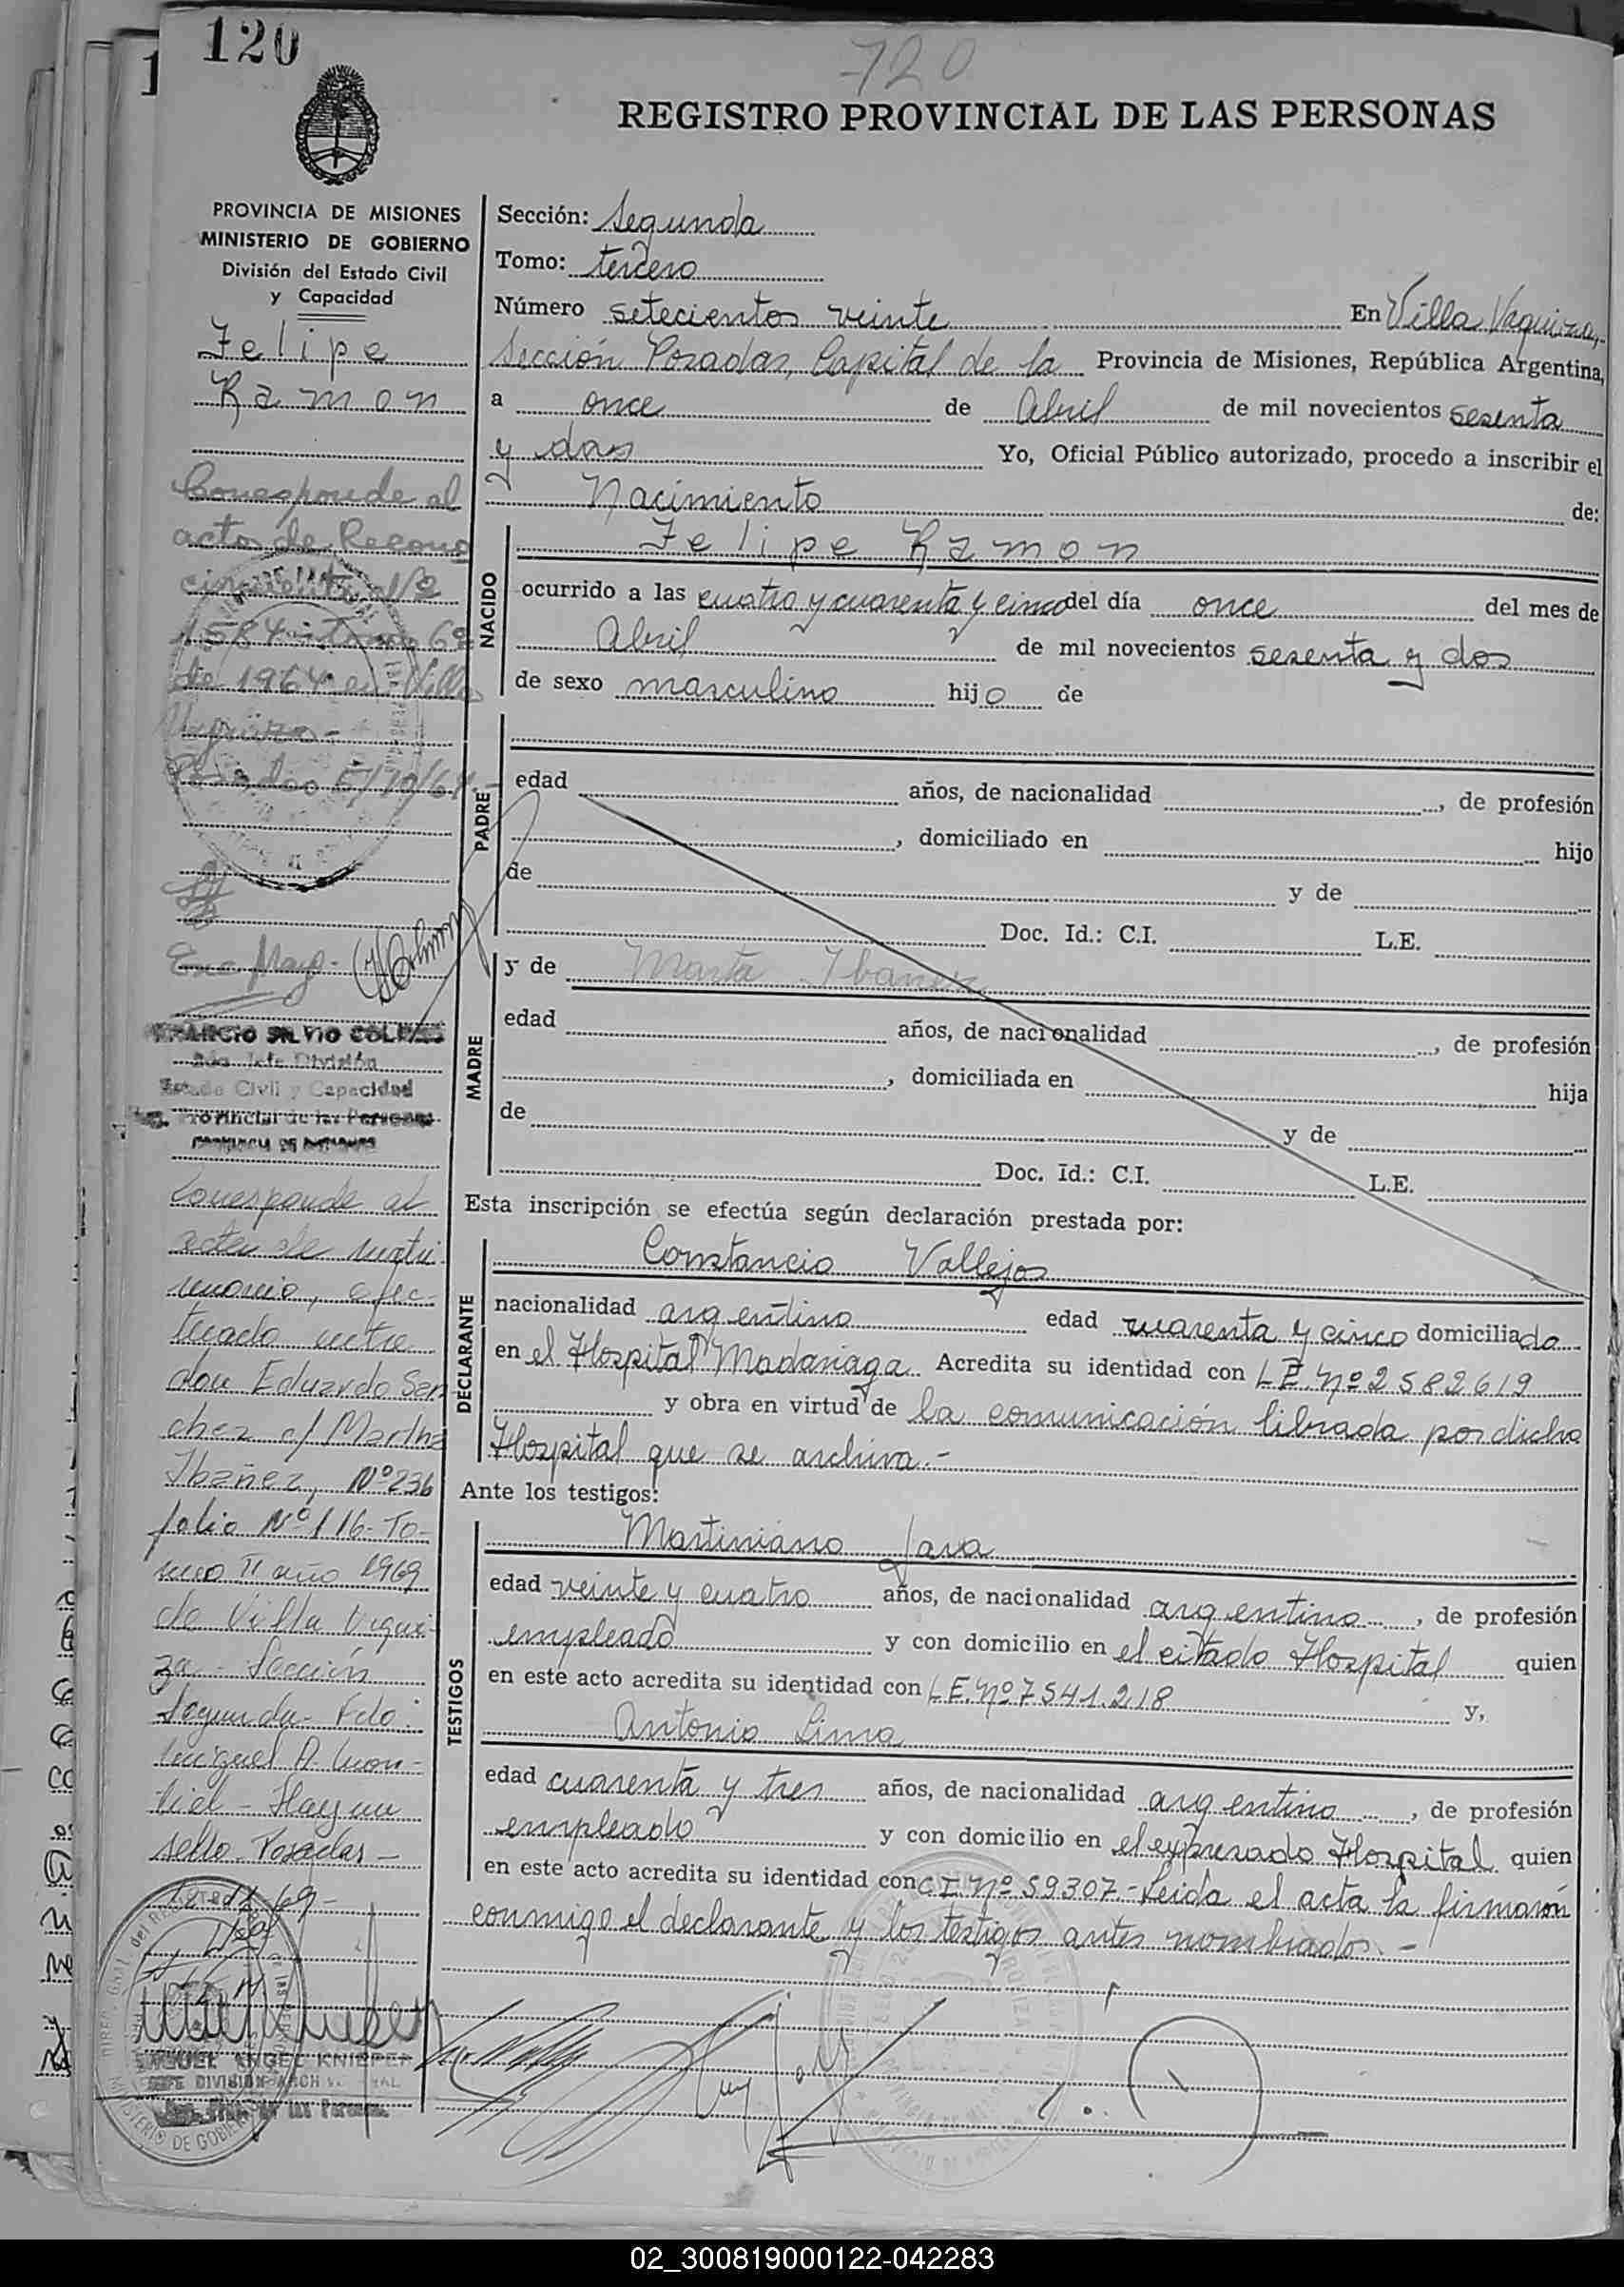 120
720
REGISTRO PROVINCIAL DE LAS PERSONAS
PROVINCIA DE MISIONES
MINISTERIO DE GOBIERNO
División del Estado Civil
y Capacidad
Felipe
Ramon
Corresponde al
acto de Recono
cimiento al Nº
1584 tomo 6º
de 1964 en Villa
Urquiza-
Posadas 5/10/64.-
Sub Jefe División
Estado Civil y Capacidad
Reg. Provincial de las Personas
PROVINCIA DE MISIONES
Corresponde al
acta de matri
monio, efec-
tuado entre
don Eduardo San
chez c/ Martha
Ibañez, Nº 236
folio Nº 116- To-
mo II año 1969
de Villa Urqui-
za- Sección
Segunda- Fdo:
Miguel A. Mon-
tiel- Hay un
sello- Posadas-
MIGUEL ANGEL KNIEPER
JEFE DIVISION ARCH
Sección: Segunda
Tomo: tercero
Número setecientos veinte En Villa Urquiza,-
Sección Posadas, Capital de la Provincia de Misiones, República Argentina,
a once de Abril de mil novecientos sesenta
y dos Yo, Oficial Público autorizado, procedo a inscribir el
Nacimiento de:
NACIDO
Felipe Ramon
ocurrido a las cuatro y cuarenta y cinco del día once del mes de
Abril de mil novecientos sesenta y dos
de sexo masculino hijo de
PADRE
edad años, de nacionalidad , de profesión
, domiciliado en hijo
de y de
Doc. Id.: C.I. L.E.
MADRE
y de Marta Ibanez
edad años, de nacionalidad , de profesión
, domiciliada en hija
de y de
Doc. Id.: C.I. L.E.
Esta inscripción se efectúa según declaración prestada por:
DECLARANTE
Constancio Vallejos
nacionalidad argentino edad cuarenta y cinco domiciliado
en el Hospital Madariaga Acredita su identidad con L.E. Nº 2582619
y obra en virtud de la comunicación librada por dicho
Hospital que se archiva.-
Ante los testigos:
TESTIGOS
Martiniano Java
edad veinte y cuatro años, de nacionalidad argentino , de profesión
empleado y con domicilio en el citado Hospital quien
en este acto acredita su identidad con L.E. Nº 7541.218 y,
Antonio Lima
edad cuarenta y tres años, de nacionalidad argentino , de profesión
empleado y con domicilio en el expresado Hospital quien
en este acto acredita su identidad con C.I. Nº 59307- Leida el acta la firmaron
conmigo el declarante y los testigos antes nombrados.-
02_300819000122-042283